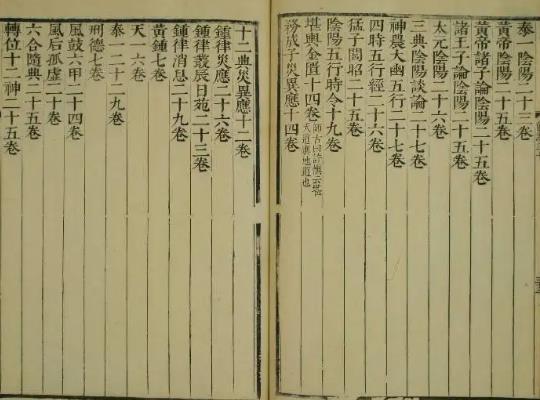 泰一陰陽二十三卷
黃帝陰陽二十五卷
黃帝諸子論陰陽二十五卷
諸王子論陰陽二十五卷
太元陰陽二十六卷
三典陰陽談論二十七卷
神農大幽五行二十七卷
四時五行經二十六卷
猛子閭昭二十五卷
陰陽五行時令十九卷
堪輿金匱十四卷 師古曰許慎云堪
天道輿地道也
務成子災異應十四卷
十二典災異應十二卷
鍾律災應二十六卷
鍾律叢辰日苑二十三卷
鍾律消息二十九卷
黃鍾七卷
天一六卷
泰一二十九卷
刑德七卷
風鼓六甲二十四卷
風后孤虛二十卷
六合隨典二十五卷
轉位十二神二十五卷